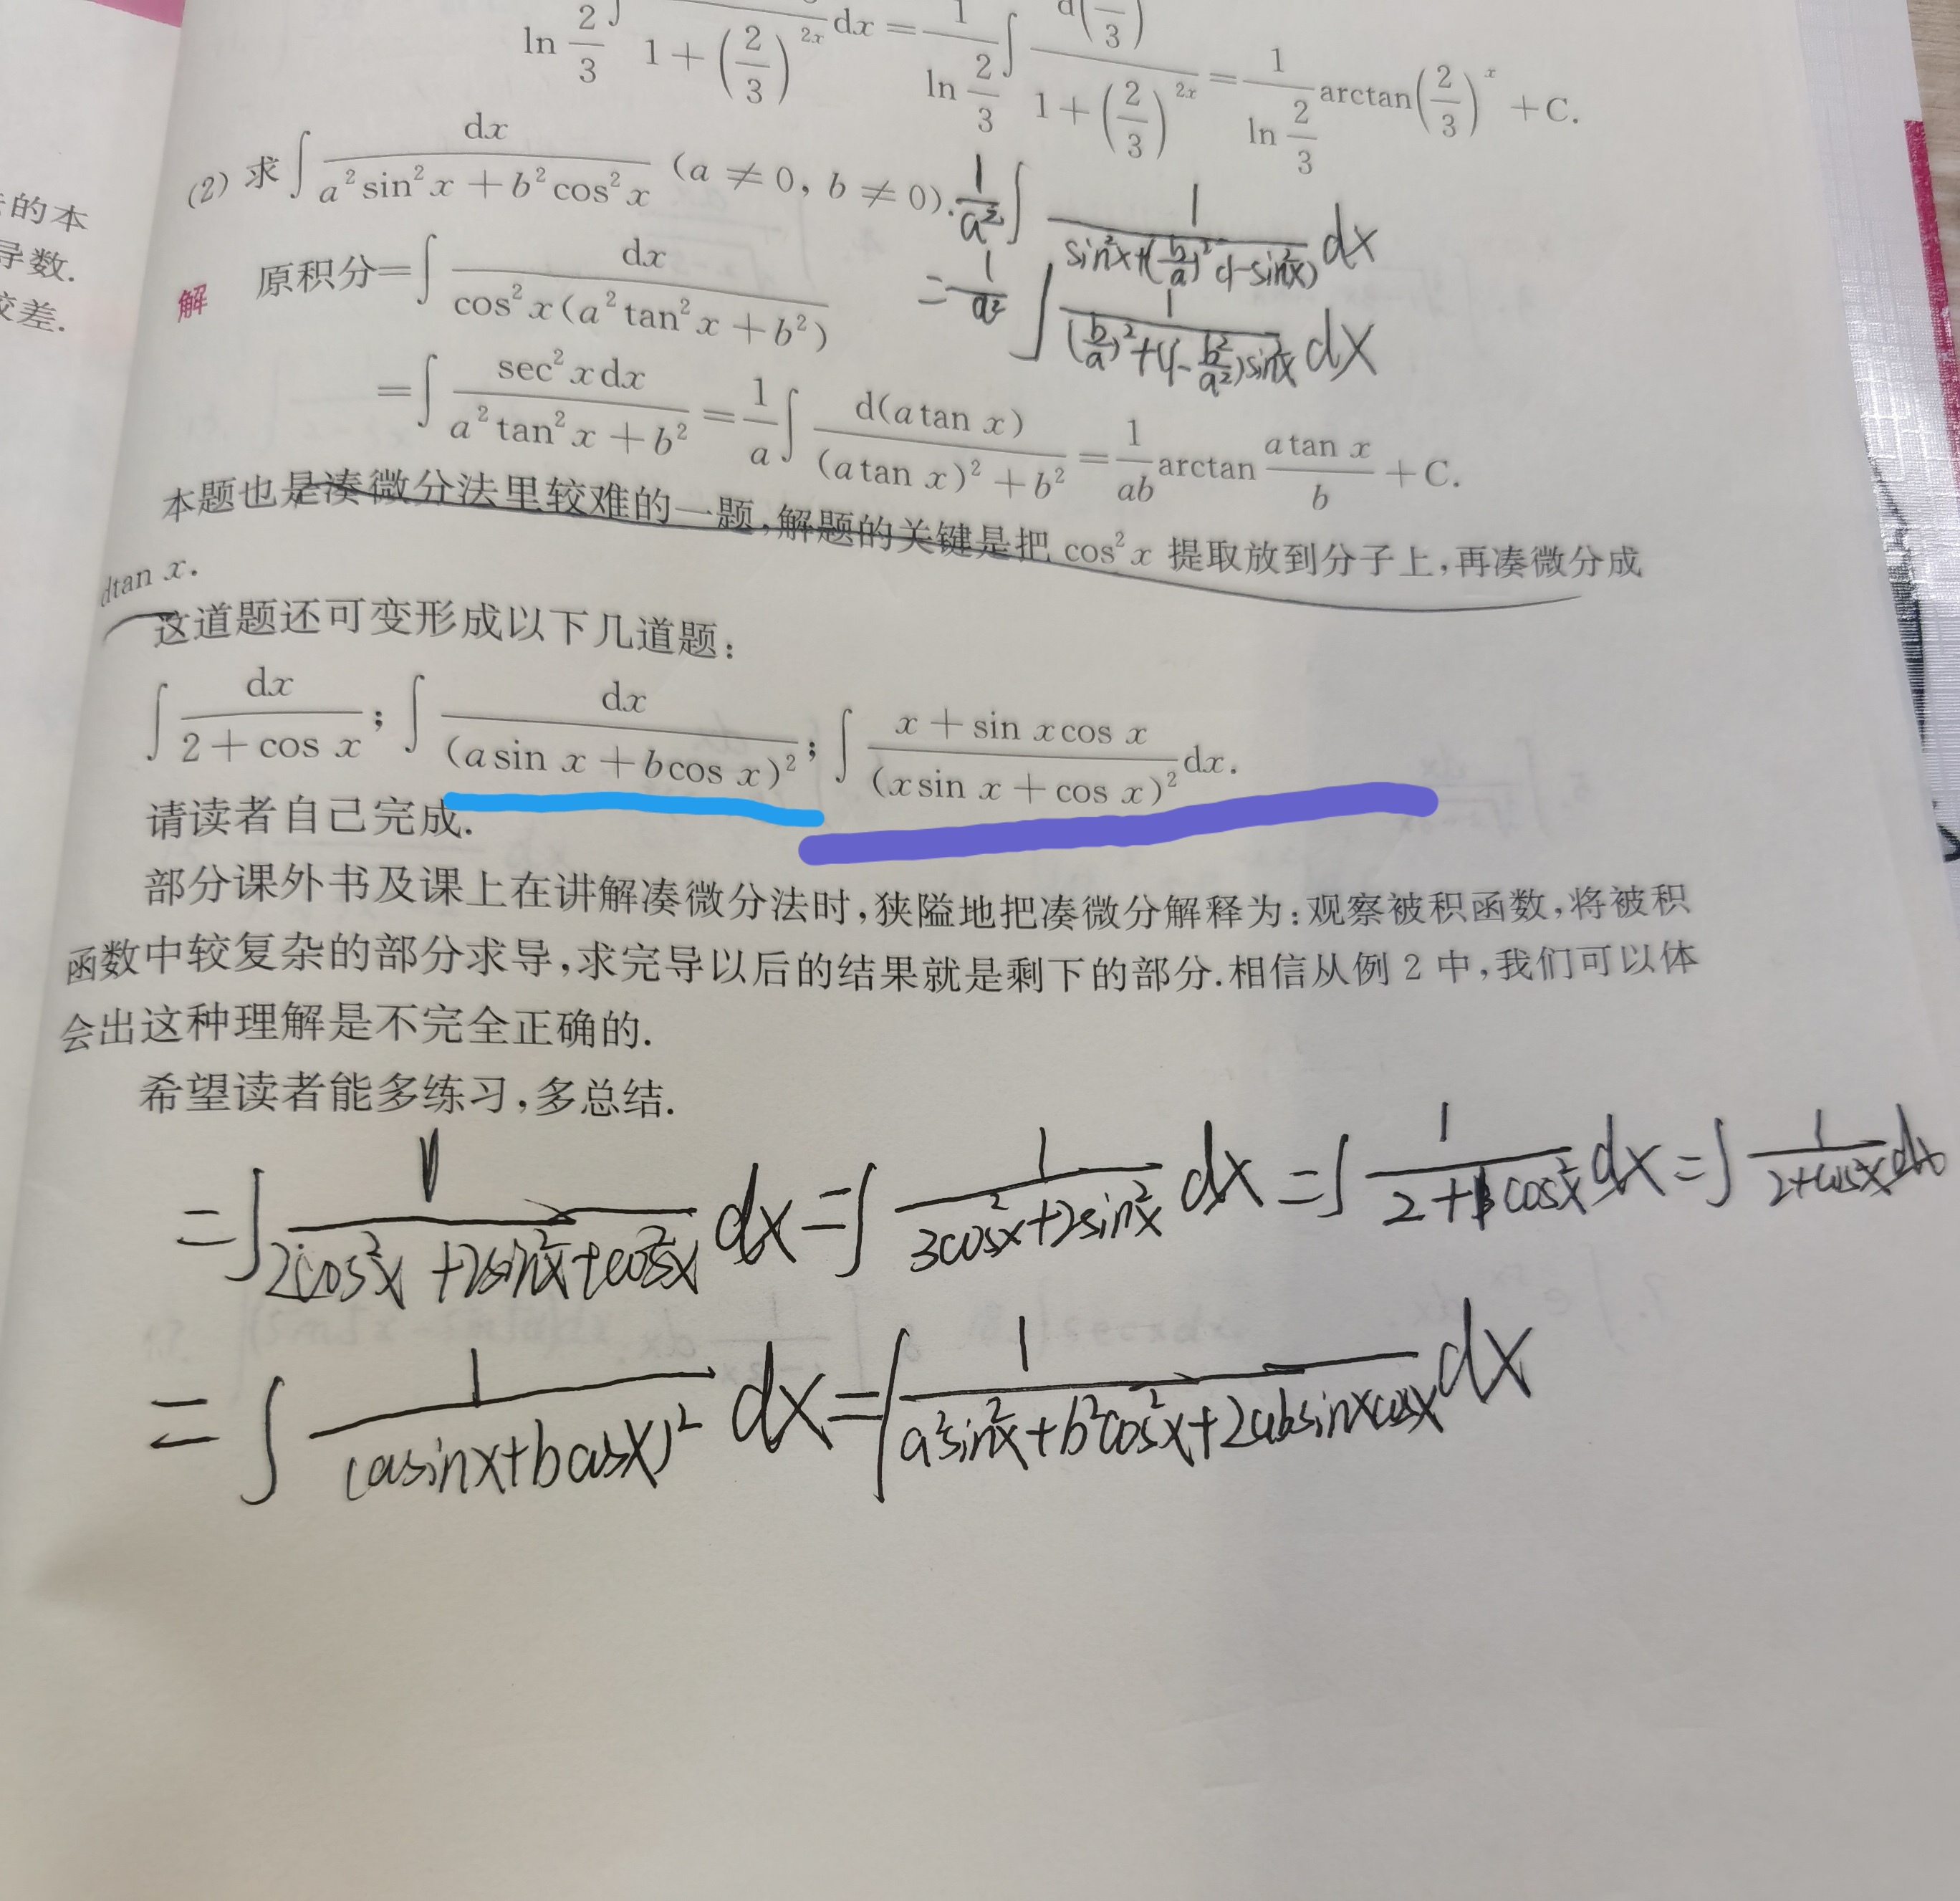 ln 2/3 ∫ 1+(2/3)^{2x} dx = 1/(ln 2/3) ∫ d(/3)/(1+(2/3)^{2x}) = 1/(ln 2/3) arctan(2/3)^x + C.
(2) 求∫ dx/(a² sin² x + b² cos² x) (a ≠ 0, b ≠ 0).
1/a² ∫ 1/(sin²x+(b/a)²(1-sin²x)) dx
解 原积分=∫ dx/(cos² x(a² tan² x + b²))
= 1/a² ∫ 1/((b/a)²+(1-b²/a²)sin²x) dx
=∫ sec² x dx/(a² tan² x + b²) = 1/a ∫ d(a tan x)/((a tan x)² + b²) = 1/(ab) arctan (a tan x)/b + C.
本题也是凑微分法里较难的一题,解题的关键是把 cos² x 提取放到分子上,再凑微分成
dtan x.
这道题还可变形成以下几道题:
∫ dx/(2 + cos x); ∫ dx/(a sin x + b cos x)²; ∫ (x + sin x cos x)/(x sin x + cos x)² dx.
请读者自己完成.
部分课外书及课上在讲解凑微分法时,狭隘地把凑微分解释为:观察被积函数,将被积
函数中较复杂的部分求导,求完导以后的结果就是剩下的部分.相信从例 2 中,我们可以体
会出这种理解是不完全正确的.
希望读者能多练习,多总结.
=∫ 1/(2cos²x+2sin²x+cos²x) dx=∫ 1/(3cos²x+2sin²x) dx=∫ 1/(2+cos²x) dx=∫ 1/(2+cos²x) dx
=∫ 1/(asinx+bcosx)² dx=∫ 1/(a²sin²x+b²cos²x+2absinxcosx) dx
的本
导数.
较差.